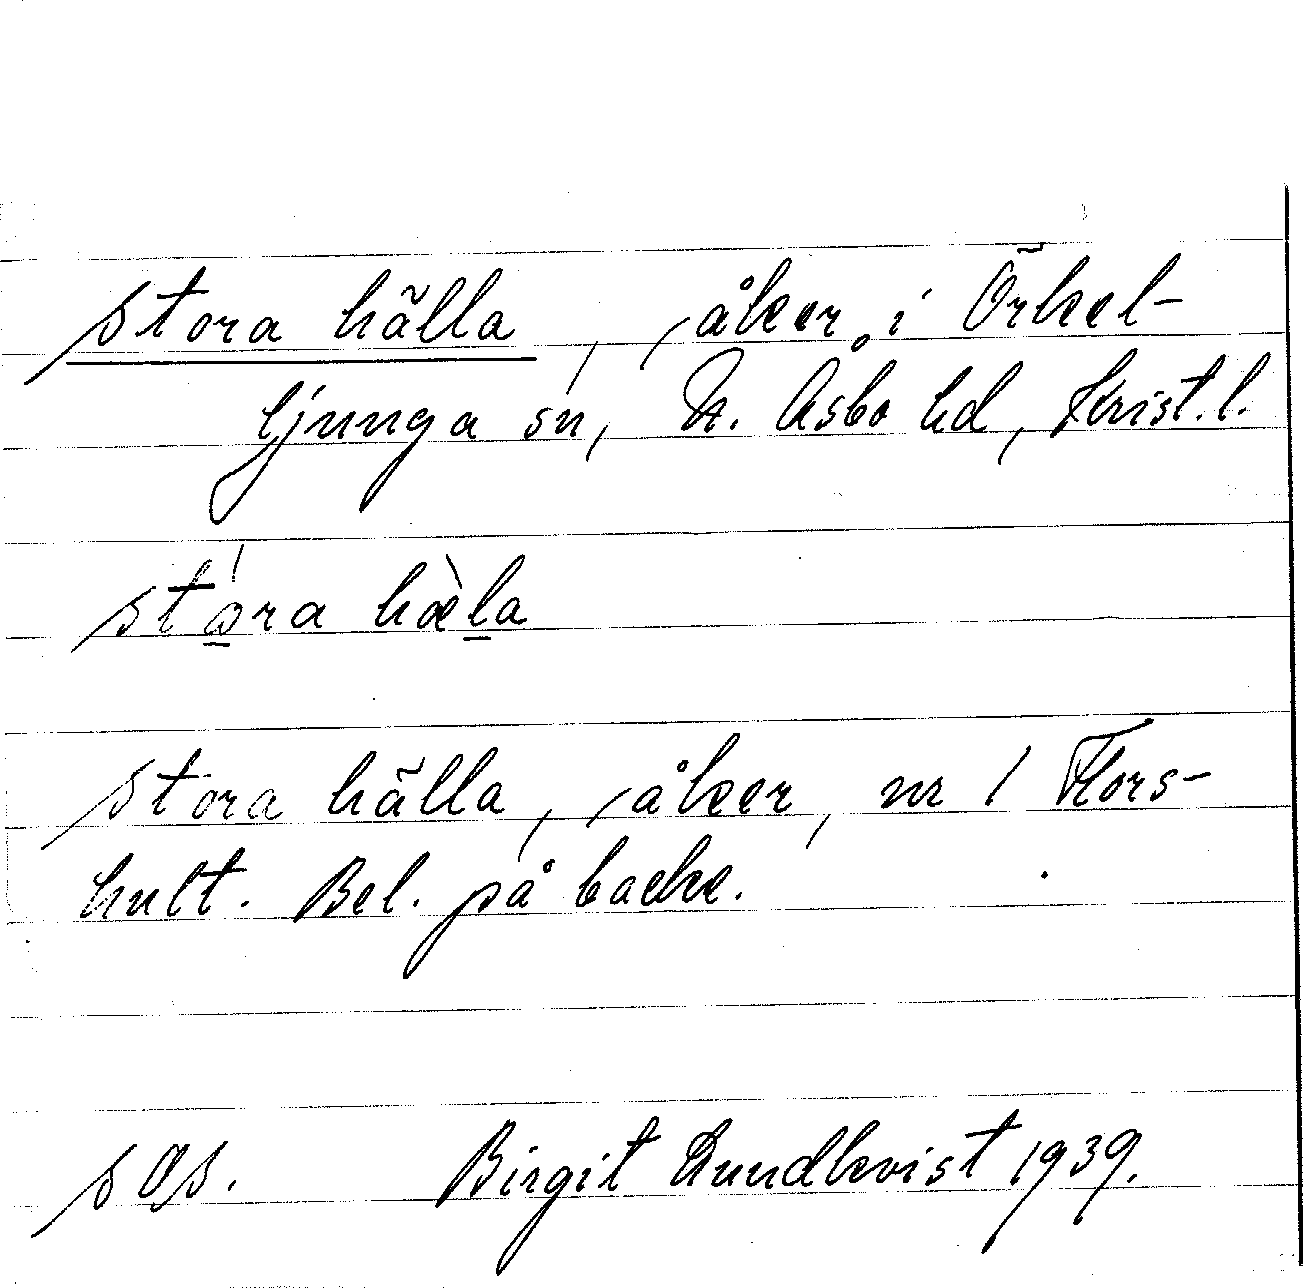 Stora hälla, åker i Örkel-
ljunga sn, N. Åsbo hd, Krist. l.
stóra hæ̀la
Stora hälla, åker, nr 1 Flors-
hult. Bel. på backe.
SOS. Birgit Lundkvist 1939.